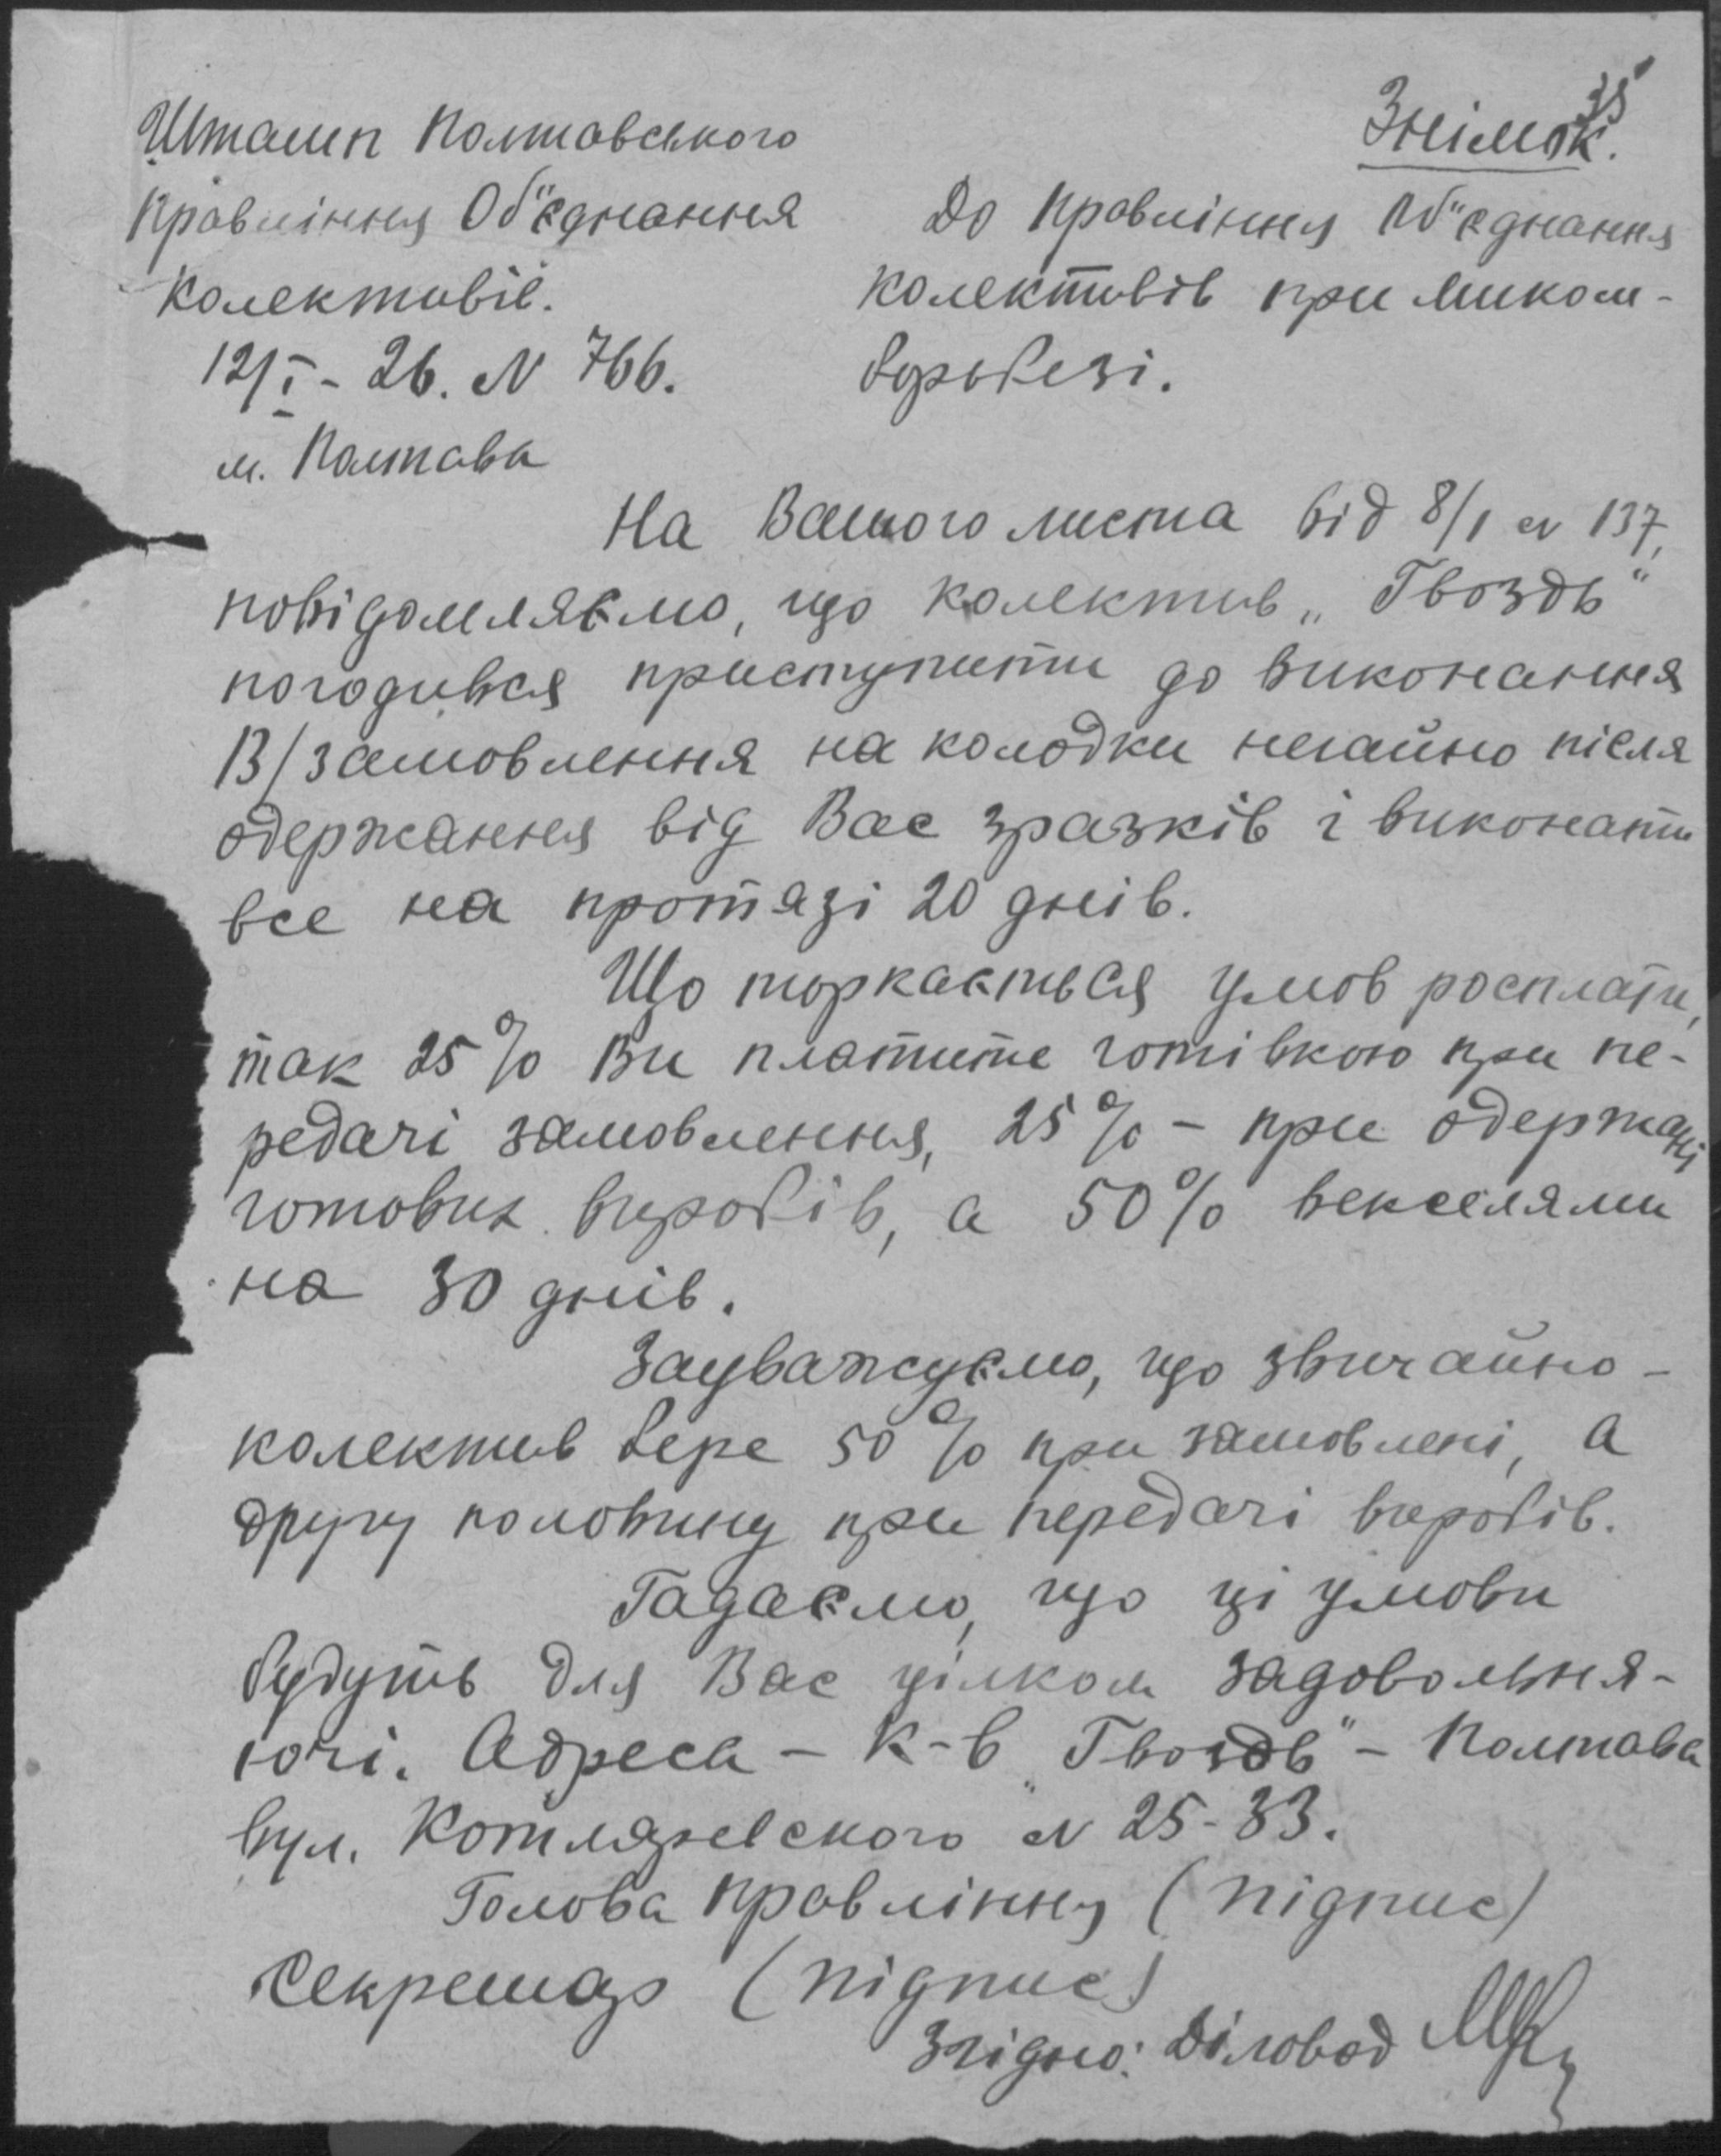 35
Знімок.
Штамп Полтавського
Правління Об"єднання
Колективів.
12/I - 26. N 766.
м. Полтава
До Правління Об"єднання
колективів при Миком-
борьбезі.
На Вашого листа від 8/1 N 137,
повідомляємо, що колектив „Гвоздь"
погодився приступити до виконання
В/замовлення на колодки негайно після
одержання від Вас зразків і виконати
все на протязі 20 днів.
Що торкається умов росплати,
так 25% Ви платите готівкою при пе-
редачі замовлення, 25% - при одержані
готових виробів, а 50% векселями
на 30 днів.
Зауважуємо, що звичайно -
колектив бере 50% при замовлені, а
другу половину при передачі виробів.
Гадаємо, що ці умови
будуть для Вас цілком задовольня-
ючі. Адреса - К-в „Гвоздь" - Полтава
вул. Котляревського N 25-33.
Голова Правління (підпис)
Секретарь (підпис)
Згідно: Діловод